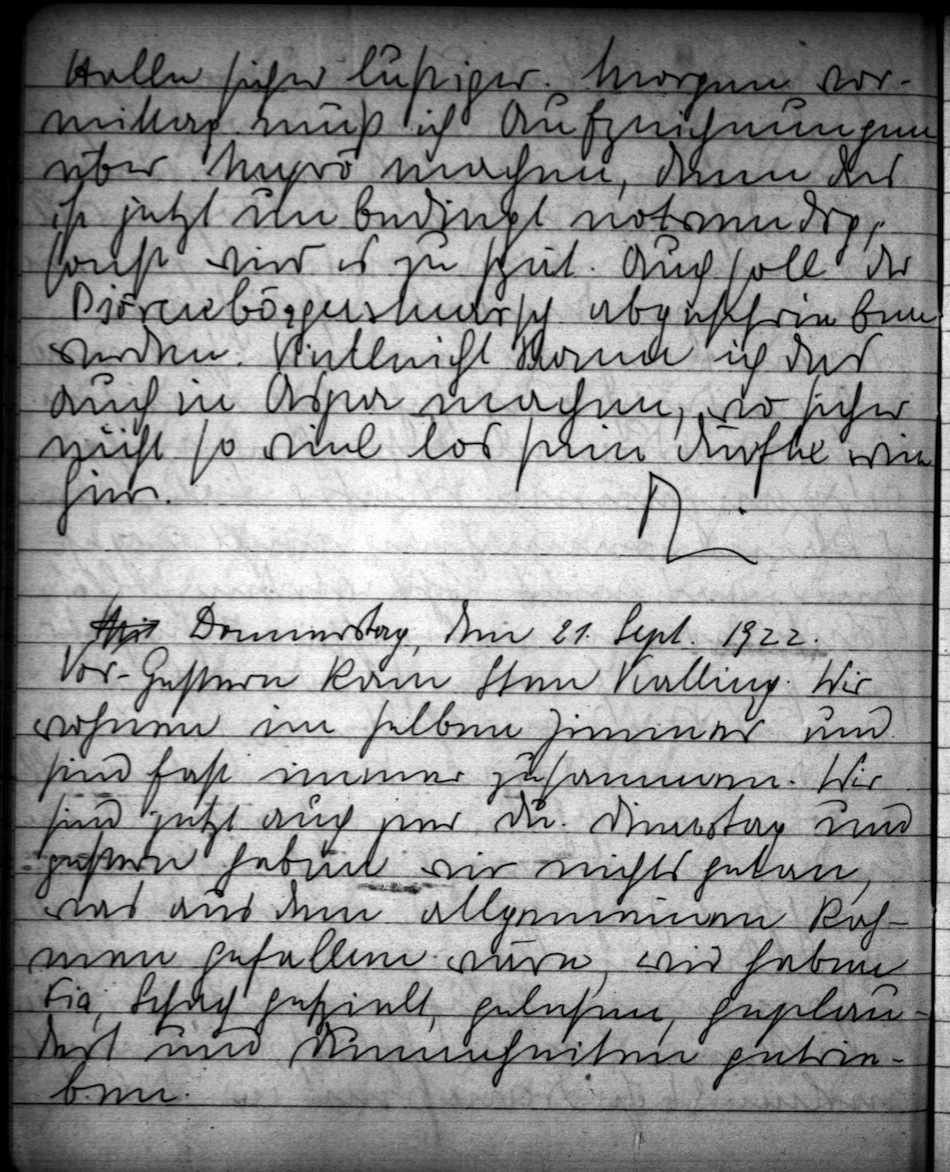 Halle sicher lustiger. Morgen vor-
mittag muß ich Aufzeichnungen
über machen, denn das
ist jetzt unbedingt notwendig,
sonst wird es zu spät. Auch soll der
Björneborgermarsch abgeschrieben
werden. Vielleicht kann ich das
auch in Aspa machen, wo sicher
nicht so viel los sein dürfte wie
hier.
Donnerstag, den 21. Sept. 1922.
Vor-Gestern kam Sten Kalling. Wir
wohnen im selben Zimmer und
sind fast immer zusammen. Wir
sind jetzt auch per du. Dienstag und
gestern haben wir nichts getan,
was aus dem allgemeinen Rah-
men gefallen wäre, wir haben
Fia, Schach gespielt, gelesen, geplau-
dert und Dummheiten getrie-
ben.